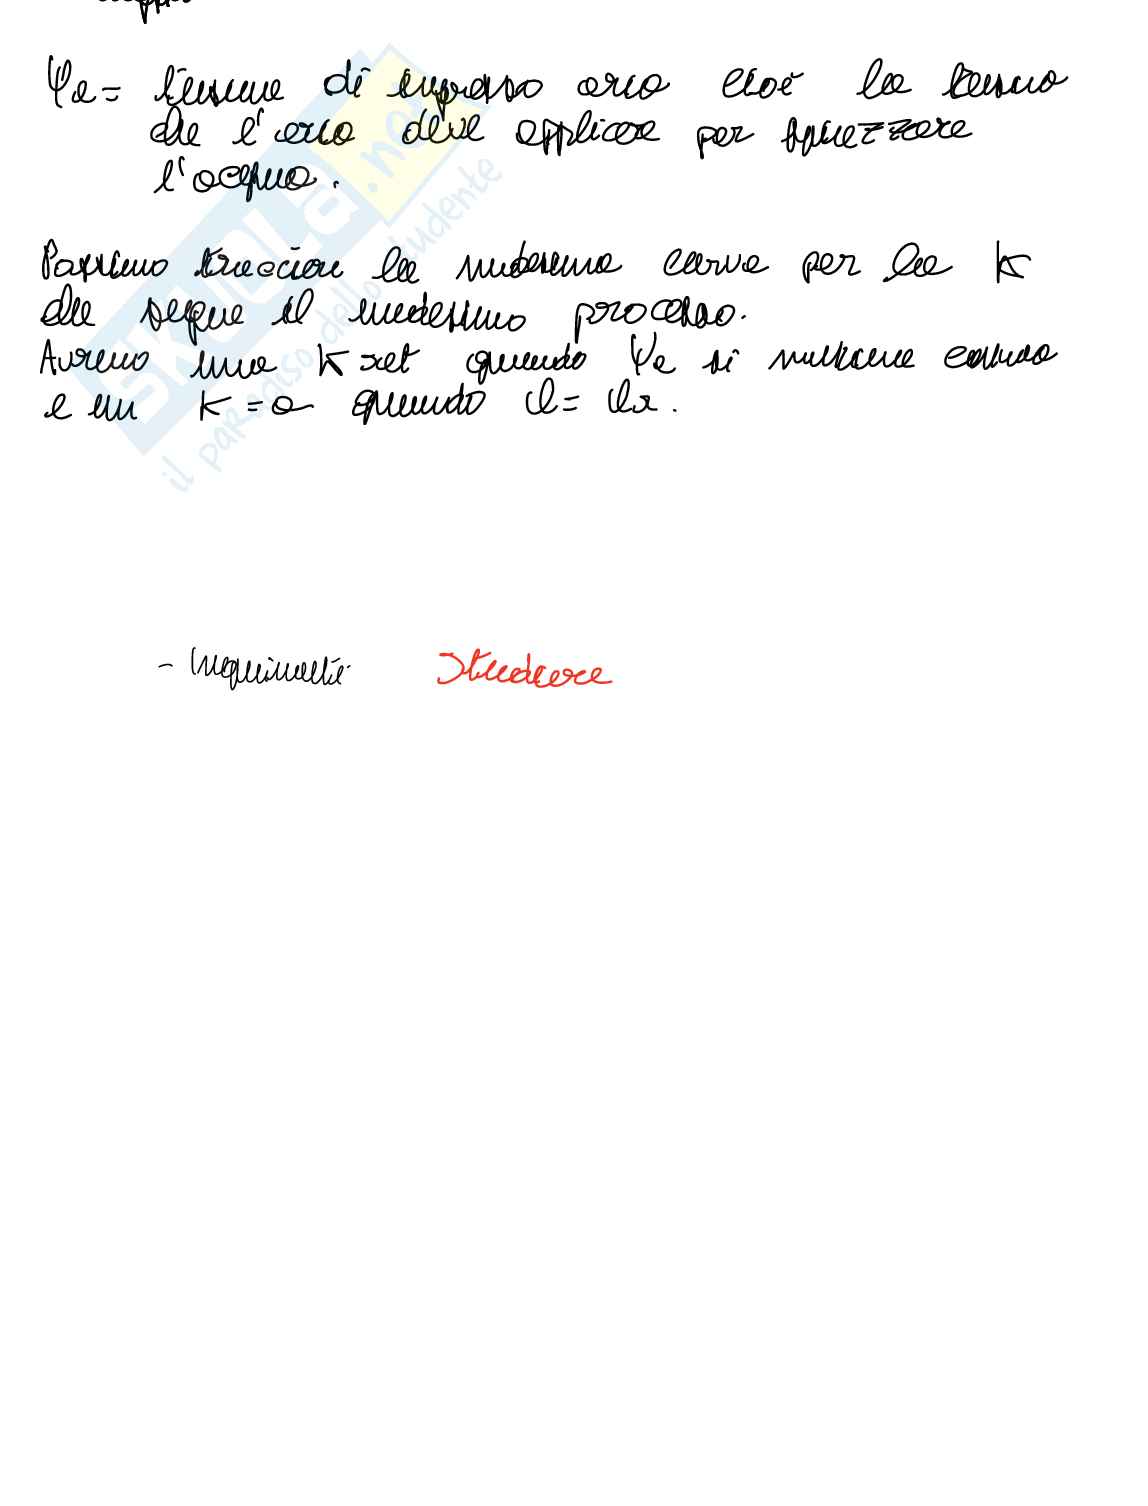 Ψa = tensione di ingresso aria cioè la tensione
che l'aria deve applicare per spiazzare
l'acqua.
Possiamo tracciare la medesima curva per la K
che segue il medesimo processo.
Avremo una K sat quando Ψa si mantiene
e un K = 0 quando θ = θr.
- Inquinanti Studiare
SKUOLA.net
il paradiso dello studente